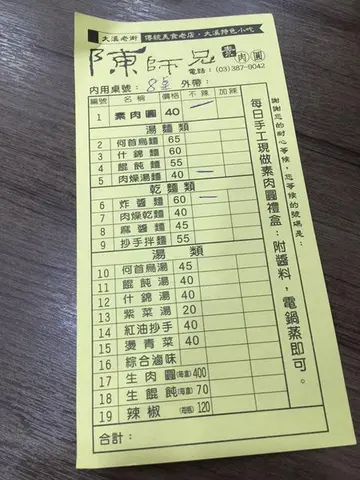 大溪老街 傳統美食老店，大溪特色小吃
陳師兄 素肉圓
電話：(03)387-9042
內用桌號： 外帶：
編號 名稱 價格 不辣 加辣
1 素肉圓 40 一
湯麵類
2 何首烏麵 65
3 什錦麵 60
4 餛飩麵 55
5 肉燥湯麵 40 一
乾麵類
6 炸醬麵 60 一
7 肉燥乾麵 40
8 麻醬麵 45
9 抄手拌麵 55
湯類
10 何首烏湯 45
11 餛飩湯 40
12 什錦湯 40
13 紫菜湯 20
14 紅油抄手 40
15 燙青菜 40
16 綜合滷味
17 生肉圓(每盒) 400
18 生餛飩(每盒) 70
19 辣椒 120
合計：
每日手工現做素肉圓禮盒：附醬料，電鍋蒸即可。
謝謝您的耐心等候，您等候的號碼是：